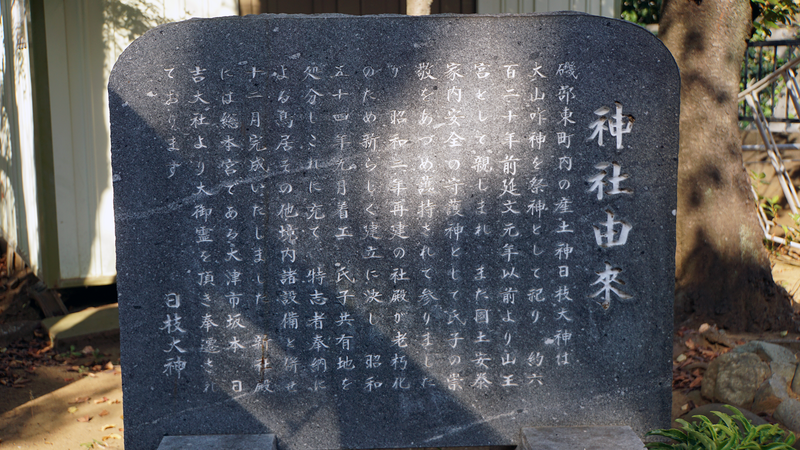 神社由来
磯部東町内の産土神日枝大神は
大山咋神を祭神として祀り 約六
百二十年前延文元年以前より山王
宮として親しまれ また国土安泰
家内安全の守護神として氏子の崇
敬をあつめ護持されて参りました
り 昭和二年再建の社殿が老朽化
のため新らしく建立に決し 昭和
五十四年九月着工 氏子共有地を
処分しこれに充て 特志者奉納に
よる鳥居その他境内諸設備と併せ
十二月完成いたしました 新社殿
には総本宮である大津市坂本 日
吉大社より大御霊を頂き奉遷され
ております
日枝大神